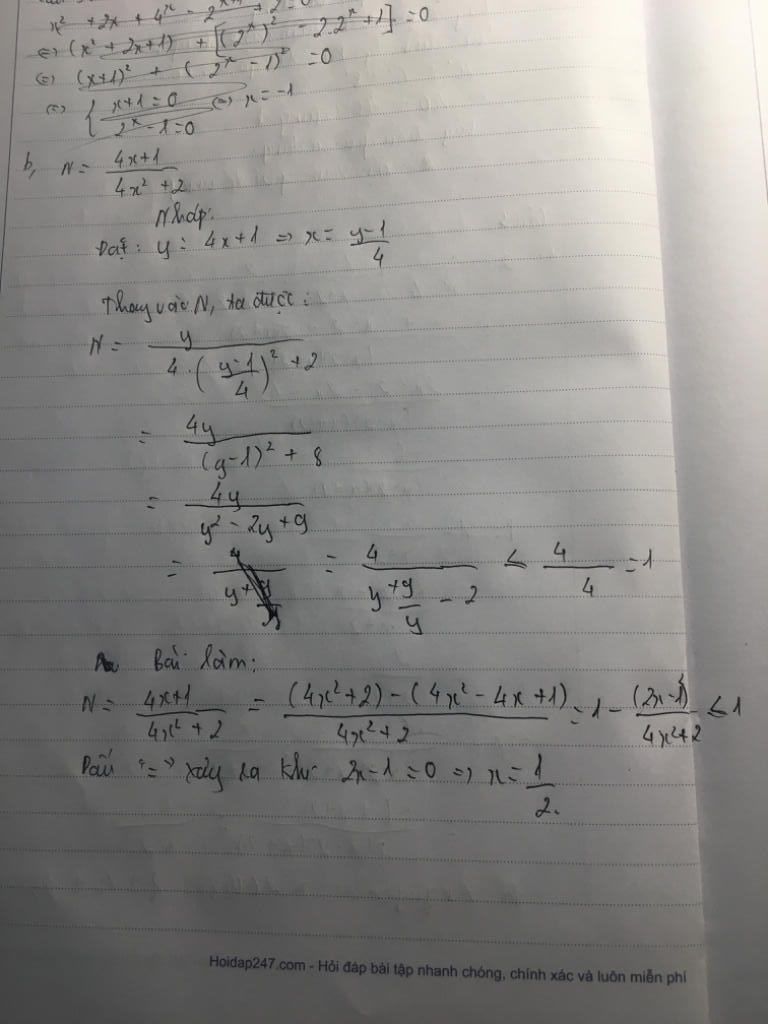 x² + 2x + 4ˣ - 2ˣ⁺¹ + 2 = 0
⇔ (x² + 2x + 1) + [(2ˣ)² - 2.2ˣ + 1] = 0
⇔ (x+1)² + (2ˣ - 1)² = 0
⇔ { x+1 = 0 ⇔ x = -1
2ˣ - 1 = 0
b, N = (4x+1)/(4x² + 2)
Nháp:
Đặt: y = 4x+1 ⇒ x = (y-1)/4
Thay vào N, ta được:
N = y/(4.((y-1)/4)² + 2)
= 4y/((y-1)² + 8)
= 4y/(y² - 2y + 9)
= 4/(y + 9/y - 2) ≤ 4/4 = 1
Bài làm:
N = (4x+1)/(4x² + 2) = ((4x² + 2) - (4x² - 4x + 1))/(4x² + 2) = 1 - (2x-1)²/(4x² + 2) ≤ 1
Dấu "=" xảy ra khi 2x - 1 = 0 ⇒ x = 1/2.
Hoidap247.com - Hỏi đáp bài tập nhanh chóng, chính xác và luôn miễn phí